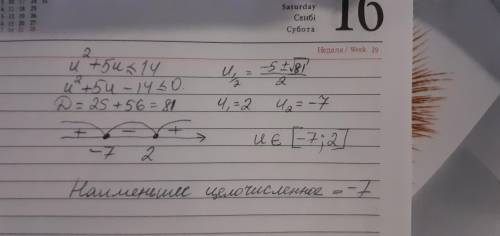 Saturday
Сенбі
Суббота
16
Неделя / Week 29
u²+5u≤14
u²+5u-14≤0.
D=25+56=81
u½ = (-5±√81)/2
u₁=2 u₂=-7
+ - +
-7 2
u∈[-7;2]
Наименьшее целочисленное = -7